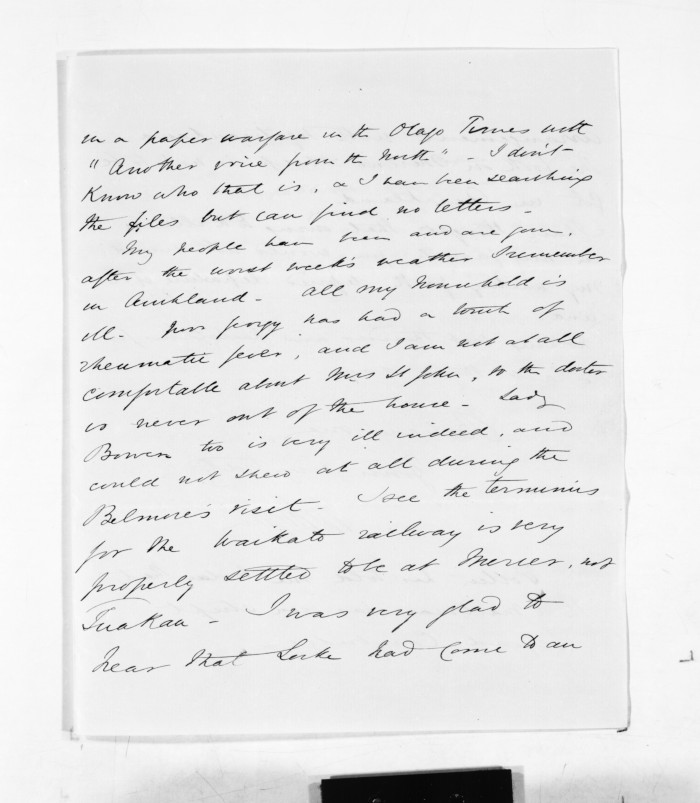 in a paper warfare in the Otago Times with
"Another voice from the North" - I don't
know who that is, as I have been searching
the files but can find no letters -
My people have been and are gone,
after the worst week's weather I remember
in Auckland - All my household is
ill - has had a touch of
rheumatic fever, and I am not at all
comfortable about Mrs St John, so the doctor
is never out of the house - Lady
Bowen too is very ill indeed, and
could not shew at all during the
Belmore's visit - I see the terminus
for the Waikato railway is very
properly settled to be at Mercer, not
Tuakau - I was very glad to
hear that Locke had come to an